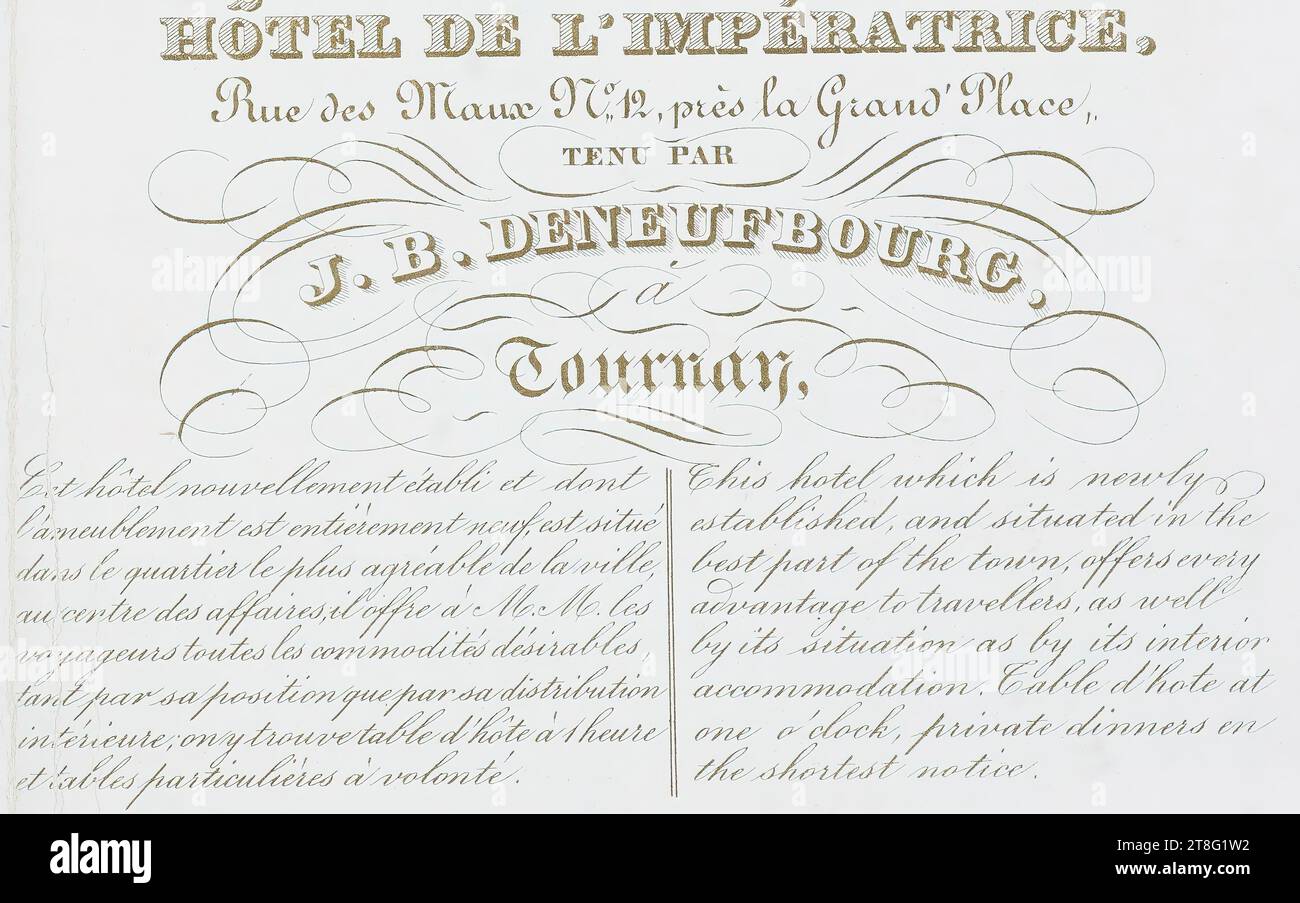 HÔTEL DE L'IMPÉRATRICE,
Rue des Maux No. 12, près la Grand' Place,
TENU PAR
J. B. DENEUFBOURG,
à
Tournay,
Cet hôtel nouvellement établi et dont
l'ameublement est entièrement neuf, est situé
dans le quartier le plus agréable de la ville,
au centre des affaires, il offre à M. M. les
voyageurs toutes les commodités désirables,
tant par sa position que par sa distribution
intérieure; on y trouve table d'hôte à 1 heure
et tables particulières à volonté.
This hotel which is newly
established, and situated in the
best part of the town, offers every
advantage to travellers, as well
by its situation as by its interior
accommodation. Table d'hote at
one o'clock, private dinners en
the shortest notice.
alamy
Image ID: 2T8G1W2
www.alamy.com